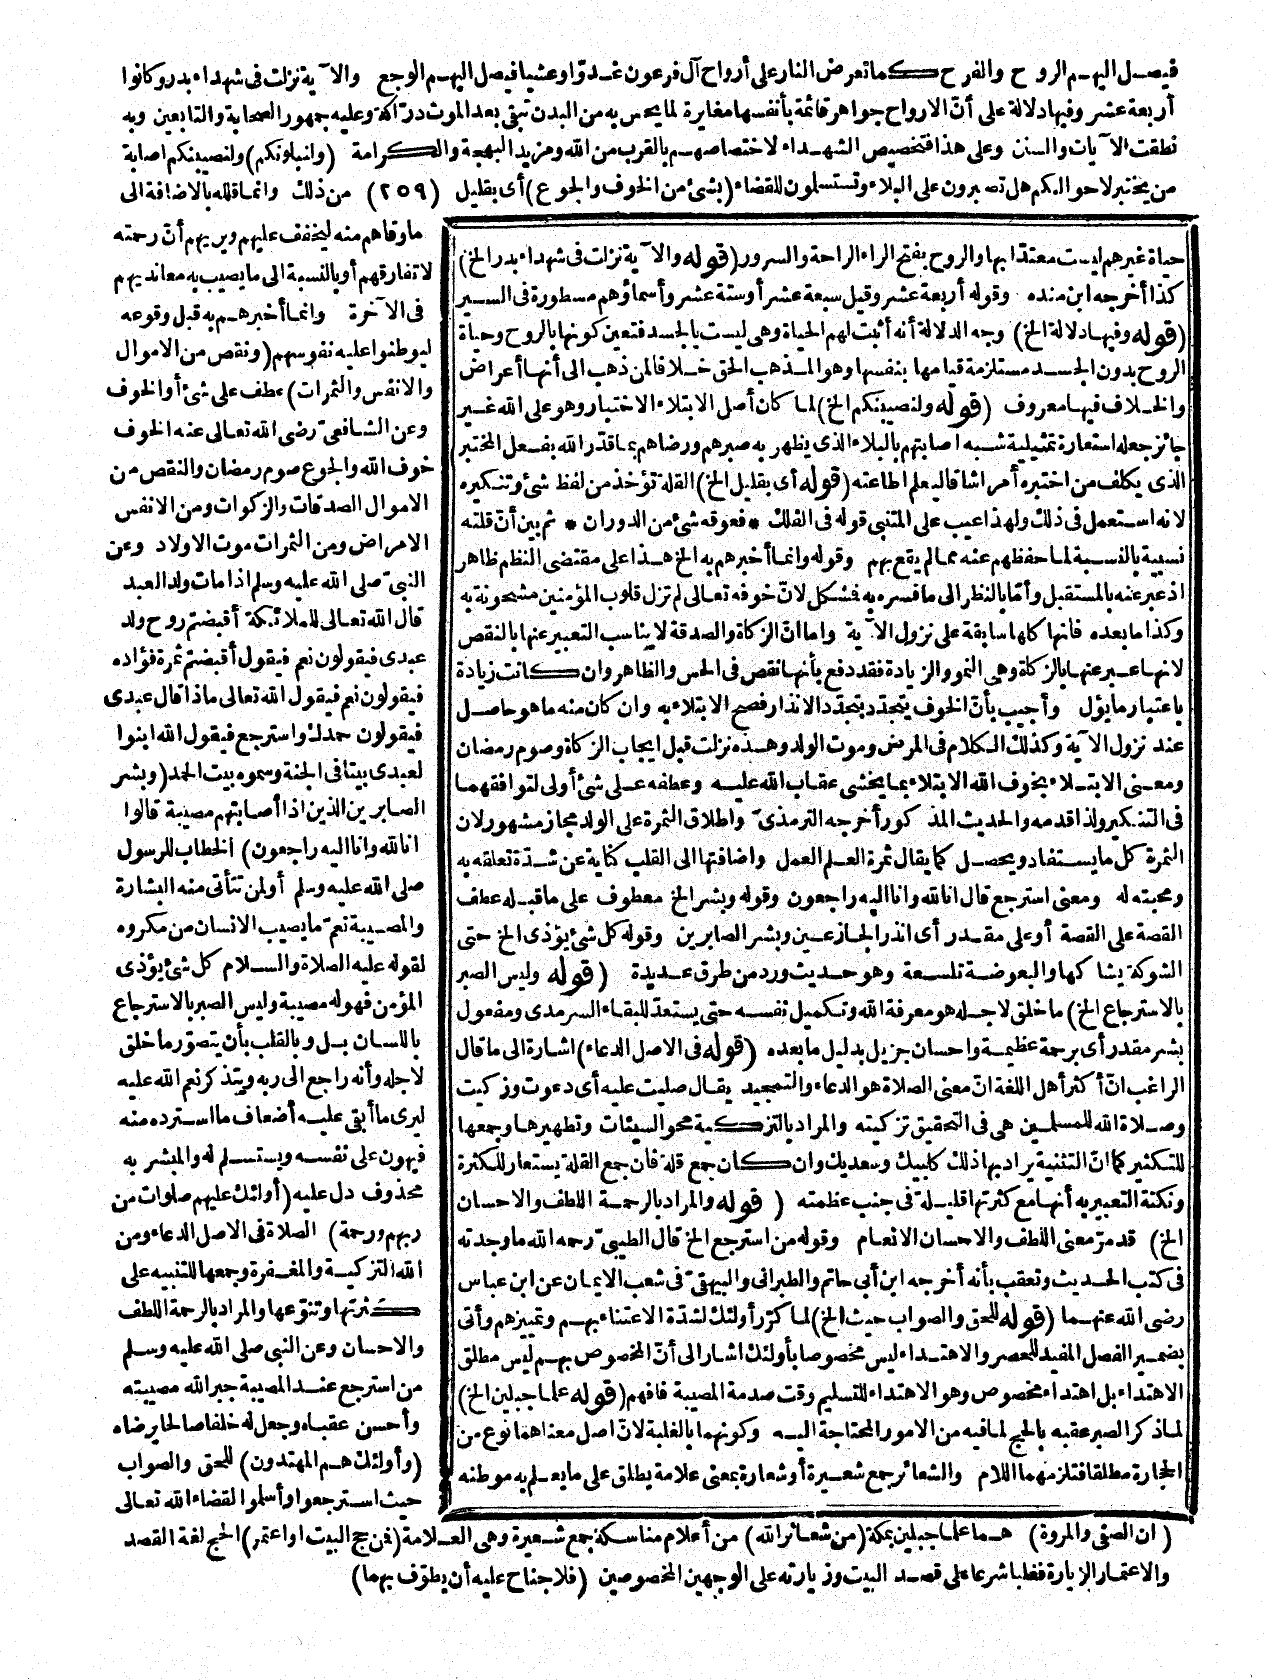 فيصل اليهم الروح والفرح كما تعرض النار على أرواح آل فرعون غدوّا وعشيا فيصل اليهم الوجع والآية نزلت فى شهداء بدر وكانوا
أربعة عشر وفيها دلالة على أنّ الارواح جواهر قائمة بأنفسها مغايرة لما يحس به من البدن تبقى بعد الموت درّاكة وعليه جمهور الصحابة والتابعين وبه
نطقت الآيات والسنن وعلى هذا فتخصيص الشهداء لاختصاصهم بالقرب من الله ومزيد البهجة والكرامة (ولنبلونكم) ولنصيبنكم اصابة
من يختبر لاحوالكم هل تصبرون على البلاء وتستسلمون للقضاء (بشئ من الخوف والجوع) أى بقليل (٢٥٩) من ذلك وانما قلله بالاضافة الى
ما وقاهم منه ليخفف عليهم ويريهم أنّ رحمته
لا تفارقهم أو بالنسبة الى ما يصيب به معانديهم
فى الآخرة وانما أخبرهم به قبل وقوعه
ليوطنوا عليه نفوسهم (ونقص من الاموال
والانفس والثمرات) عطف على شئ أو الخوف
وعن الشافعىّ رضى الله تعالى عنه الخوف
خوف الله والجوع صوم رمضان والنقص من
الاموال الصدقات والزكوات ومن الانفس
الامراض ومن الثمرات موت الاولاد وعن
النبىّ صلى الله عليه وسلم اذا مات ولد العبد
قال الله تعالى للملائكة أقبضتم روح ولد
عبدى فيقولون نعم فيقول أقبضتم ثمرة فؤاده
فيقولون نعم فيقول الله تعالى ماذا قال عبدى
فيقولون حمدك واسترجع فيقول الله ابنوا
لعبدى بيتا فى الجنة وسموه بيت الحمد (وبشر
الصابرين الذين اذا أصابتهم مصيبة قالوا
انا لله وانا اليه راجعون) الخطاب للرسول
صلى الله عليه وسلم أو لمن تتأتى منه البشارة
والمصيبة تعمّ ما يصيب الانسان من مكروه
لقوله عليه الصلاة والسلام كل شئ يؤذى
المؤمن فهو له مصيبة وليس الصبر بالاسترجاع
باللسان بل وبالقلب بأن يتصوّر ما خلق
لاجله وأنه راجع الى ربه ويتذكر نعم الله عليه
ليرى ما أبقى عليه أضعاف ما استرده منه
فيهون على نفسه ويستسلم له والمبشر به
محذوف دل عليه (أولئك عليهم صلوات من
ربهم ورحمة) الصلاة فى الاصل الدعاء ومن
الله التزكية والمغفرة وجمعها للتنبيه على
كثرتها وتنوّعها والمراد بالرحمة اللطف
والاحسان وعن النبى صلى الله عليه وسلم
من استرجع عند المصيبة جبر الله مصيبته
وأحسن عقباه وجعل له خلفا صالحا يرضاه
(وأولئك هم المهتدون) للحق والصواب
حيث استرجعوا وأسلموا لقضاء الله تعالى
حياة غيرهم ليست معتدّا بها والروح بفتح الراء الراحة والسرور (قوله والآية نزلت فى شهداء بدر الخ)
كذا أخرجه ابن منده وقوله أربعة عشر وقيل سبعة عشر أو ستة عشر وأسماؤهم مسطورة فى السير
(قوله وفيها دلالة الخ) وجه الدلالة أنه أثبت لهم الحياة وهى ليست بالجسد فتعين كونها بالروح وحياة
الروح بدون الجسد مستلزمة قيامها بنفسها وهو المذهب الحق خلافا لمن ذهب الى أنها أعراض
والخلاف فيها معروف (قوله ولنصيبنكم الخ) لما كان أصل الابتلاء الاختبار وهو على الله غير
جائز جعله استعارة تمثيلية شبه اصابتهم بالبلاء الذى يظهر به صبرهم ورضاهم بما قدّر الله بفعل المختبر
الذى يكلف من اختبره أمرا شاقا ليعلم اطاعته (قوله أى بقليل الخ) القلة تؤخذ من لفظ شئ وتنكيره
لانه استعمل فى ذلك ولهذا عيب على المتنبى قوله فى الفلك * فعوقه شئ من الدوران * ثم بين أنّ قلته
نسبية بالنسبة لما حفظهم عنه مما لم يقع بهم وقوله وانما أخبرهم به الخ هذا على مقتضى النظم ظاهر
اذ عبر عنه بالمستقبل وأمّا بالنظر الى ما فسره به فمشكل لانّ خوفه تعالى لم تزل قلوب المؤمنين مشحونة به
وكذا ما بعده فانها كلها سابقة على نزول الآية واما انّ الزكاة والصدقة لا يناسب التعبير عنها بالنقص
لانها عبر عنها بالزكاة وهى النمو والزيادة فقد دفع بأنها نقص فى الحس والظاهر وان كانت زيادة
باعتبار ما يؤل وأجيب بأنّ الخوف يتجدّد بتجدّد الانذار فصح الابتلاء به وان كان منه ما هو حاصل
عند نزول الآية وكذلك الكلام فى المرض وموت الولد وهذه نزلت قبل ايجاب الزكاة وصوم رمضان
ومعنى الابتلاء بخوف الله الابتلاء بما يخشى عقاب الله عليه وعطفه على شئ أولى لتوافقهما
فى التنكير ولذا قدمه والحديث المذكور أخرجه الترمذىّ واطلاق الثمرة على الولد مجاز مشهور لان
الثمرة كل ما يستفاد ويحصل كما يقال ثمرة العلم العمل واضافتها الى القلب كناية عن شدّة تعلقه به
ومحبته له ومعنى استرجع قال انا لله وانا اليه راجعون وقوله وبشر الخ معطوف على ما قبله عطف
القصة على القصة أو على مقدر أى انذر الجازعين وبشر الصابرين وقوله كل شئ يؤذى الخ حتى
الشوكة يشاكها والبعوضة تلسعة وهو حديث ورد من طرق عديدة (قوله وليس الصبر
بالاسترجاع الخ) ما خلق لاجله هو معرفة الله وتكميل نفسه حتى يستعدّ للبقاء السرمدى ومفعول
بشر مقدر أى برحمة عظيمة واحسان جزيل بدليل ما بعده (قوله فى الاصل الدعاء) اشارة الى ما قال
الراغب انّ أكثر أهل اللغة انّ معنى الصلاة هو الدعاء والتمجيد يقال صليت عليه أى دعوت وزكيت
وصلاة الله للمسلمين هى فى التحقيق تزكيته والمراد بالتزكية محو السيئات وتطهيرها وجمعها
للتكثير كما انّ التثنية يراد بها ذلك كلبيك وسعديك وان كان جمع قلة فان جمع القلة يستعار للكثرة
ونكتة التعبير به أنها مع كثرتها قليلة فى جنب عظمته (قوله والمراد بالرحمة اللطف والاحسان
الخ) قد مرّ معنى اللطف والاحسان الانعام وقوله من استرجع الخ قال الطيبىّ رحمه الله ما وجدته
فى كتب الحديث وتعقب بأنه أخرجه ابن أبى حاتم والطبرانى والبيهقىّ فى شعب الايمان عن ابن عباس
رضى الله عنهما (قوله للحق والصواب حيث الخ) لما كرّر أولئك لشدّة الاعتناء بهم وتمييزهم وأتى
بضمير الفصل المفيد للحصر والاهتداء ليس مخصوصا بأولئك اشار الى أنّ المخصوص بهم ليس مطلق
الاهتداء بل اهتداء مخصوص وهو الاهتداء للتسليم وقت صدمة المصيبة فافهم (قوله علما جبلين الخ)
لما ذكر الصبر عقبه بالحج لما فيه من الامور المحتاجة اليه وكونهما بالغلبة لانّ اصل معناهما نوع من
الحجارة مطلقا فتلزمهما اللام والشعائر جمع شعيرة أو شعارة بمعنى علامة يطلق على ما يعلم به موطنه
(ان الصفى والمروة) هما علما جبلين بمكة (من شعائر الله) من أعلام مناسكه جمع شعيرة وهى العلامة (فمن حج البيت او اعتمر) الحج لغة القصد
والاعتمار الزيارة فغلبا شرعا على قصد البيت وزيارته على الوجهين المخصوصين (فلا جناح عليه أن يطوّف بهما)